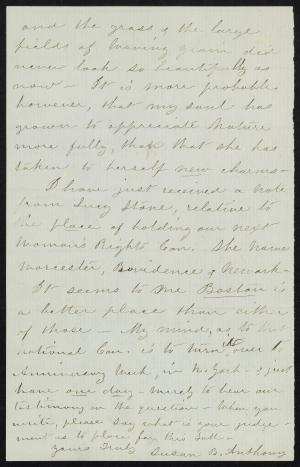 and the grass & the large
fields of waving grain did
never look so beautifully as
now - It is more probable
however, that my soul has
grown to appreciate Nature
more fully, than that she has
taken to herself new charms -
I have just received a note
from Lucy Stone, relative to
the place of holding our next
Woman's Rights Con. She names
Worcester, Providence & Newark -
It seems to me Boston is
a better place than either
of those - My mind, as to that
national Con. is to turn it over to
Anniversary Week, in N. York - & just
have one day - merely to hear our
testimony on the question - When you
write, please say what is your judge-
ment as to place for this Fall -
Yours Truly
Susan B. Anthony